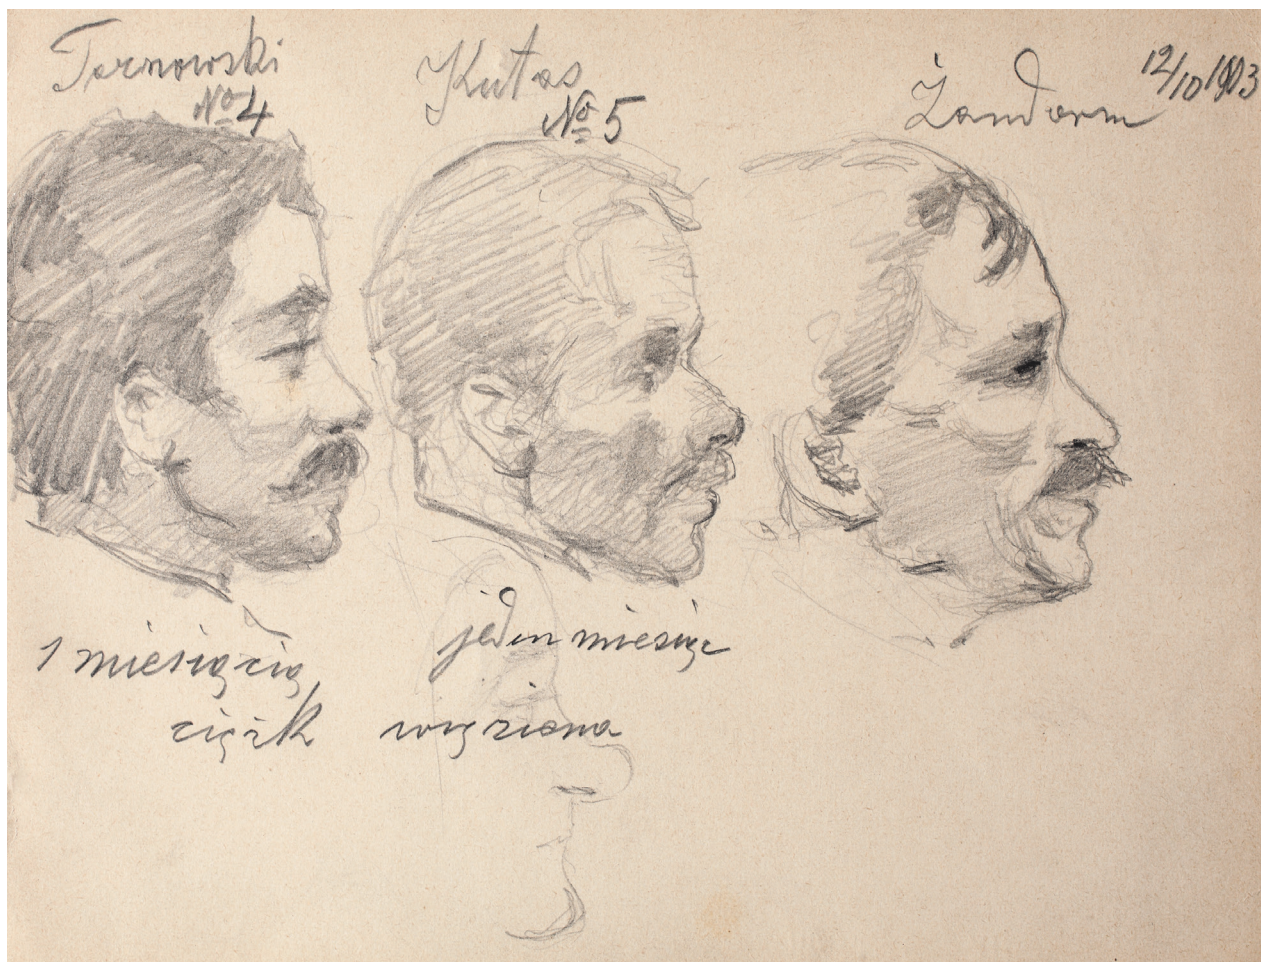 Tarnowski
№ 4
Kutas
№ 5
Żandarm
12/10 1903
1 miesiąc
jeden miesiąc
więziena